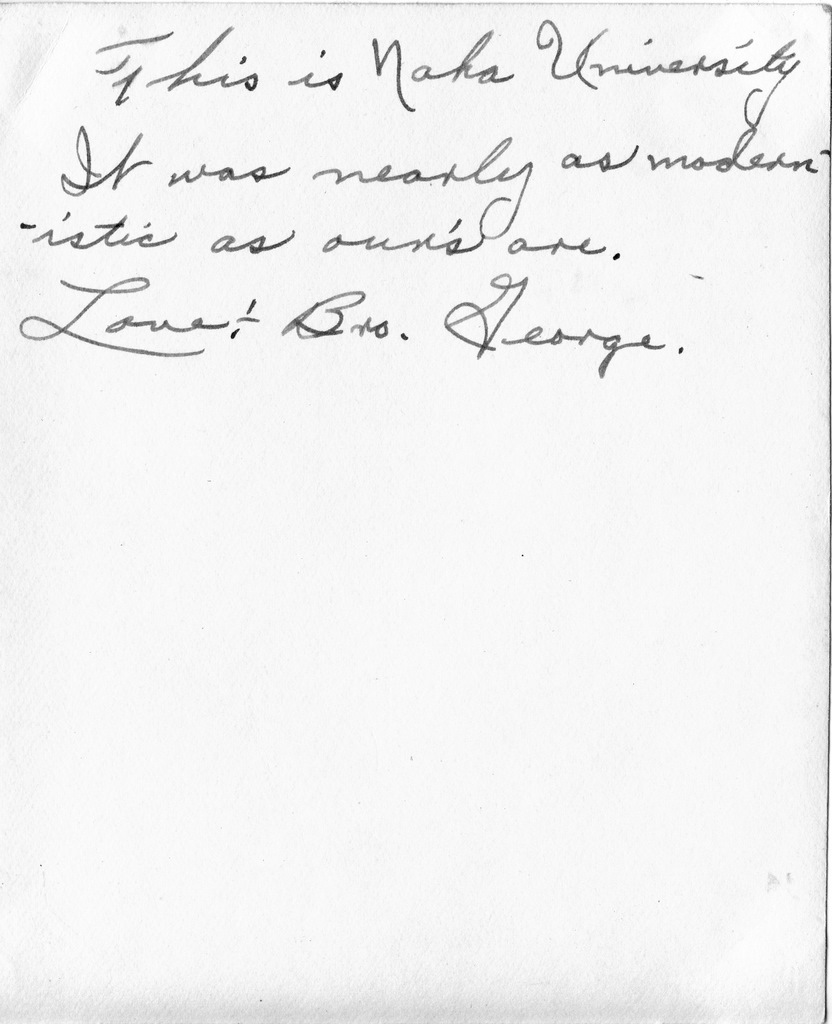 This is Naha University
It was nearly as modern-
-istic as our's are.
Love:- Bro. George.